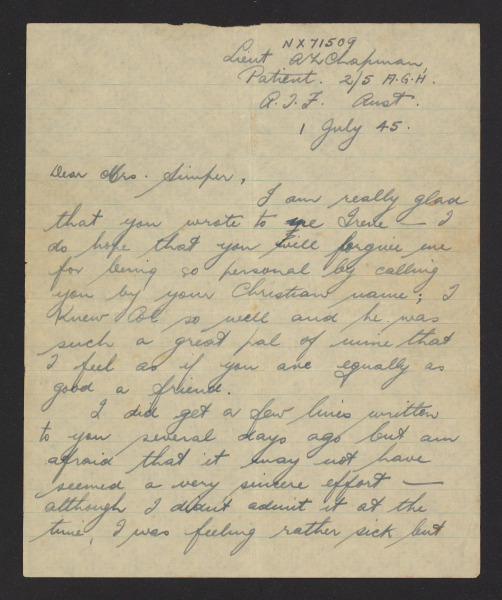 NX71509
Lieut A L Chapman,
Patient. 2/5 A.G.H.
A.I.F. Aust.
1 July 45.
Dear Mrs. Simper,
I am really glad
that you wrote to me Irene — I
do hope that you will forgive me
for being so personal by calling
you by your Christian name; I
knew Col so well and he was
such a great pal of mine that
I feel as if you are equally as
good a friend.
I did get a few lines written
to you several days ago but am
afraid that it may not have
seemed a very sincere effort —
although I didnt admit it at the
time, I was feeling rather sick but